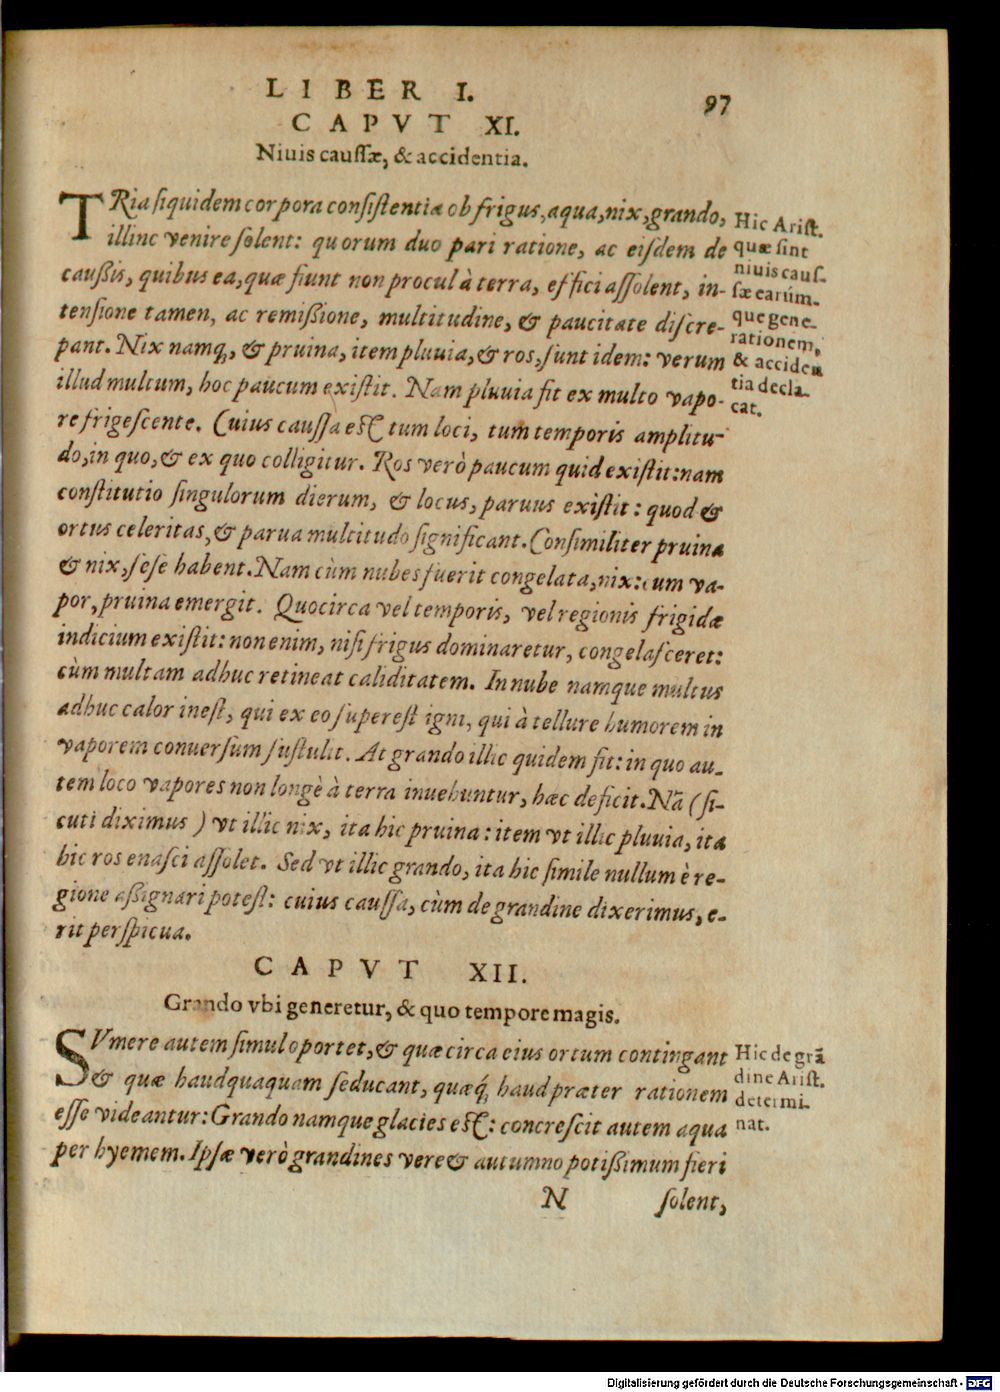 LIBER I.
97
CAPVT XI.
Niuis caussæ, & accidentia.
TRia siquidem corpora consistentia ob frigus, aqua, nix, grando,
illinc venire solent: quorum duo pari ratione, ac eisdem de
caußis, quibus ea, quæ fiunt non procul à terra, effici assolent, in-
tensione tamen, ac remißione, multitudine, & paucitate discre-
pant. Nix namq́, & pruina, item pluuia, & ros, sunt idem: verum
illud multum, hoc paucum existit. Nam pluuia fit ex multo vapo-
re frigescente. Cuius caussa est tum loci, tum temporis amplitu-
do, in quo, & ex quo colligitur. Ros verò paucum quid existit: nam
constitutio singulorum dierum, & locus, paruus existit: quod &
ortus celeritas, & parua multitudo significant. Consimiliter pruina
& nix, sese habent. Nam cùm nubes fuerit congelata, nix: cum va-
por, pruina emergit. Quocirca vel temporis, vel regionis frigidæ
indicium existit: non enim, nisi frigus dominaretur, congelasceret:
cùm multam adhuc retineat caliditatem. In nube namque multus
adhuc calor inest, qui ex eo superest igni, qui à tellure humorem in
vaporem conuersum sustulit. At grando illic quidem fit: in quo au-
tem loco vapores non longè à terra inuehuntur, hæc deficit. Nã (si-
cuti diximus) vt illic nix, ita hic pruina: item vt illic pluuia, ita
hic ros enasci assolet. Sed vt illic grando, ita hic simile nullum è re-
gione aßignari potest: cuius caussa, cùm de grandine dixerimus, e-
rit perspicua.
Hic Arist.
quæ sint
niuis caus-
sæ earúm-
que gene-
rationem,
& acciden
tia decla-
cat.
CAPVT XII.
Grando vbi generetur, & quo tempore magis.
SVmere autem simul oportet, & quæ circa eius ortum contingant
& quæ haudquaquam seducant, quæq́; haud præter rationem
esse videantur: Grando namque glacies est: concrescit autem aqua
per hyemem. Ipsæ verò grandines vere & autumno potißimum fieri
Hic de grã
dine Arist.
determi-
nat.
N
solent,
Digitalisierung gefördert durch die Deutsche Forschungsgemeinschaft - DFG